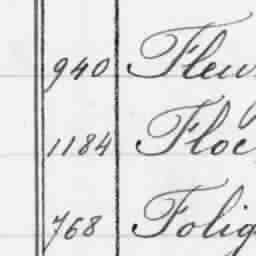 940 Fleu
1184 Floc
768 Folig